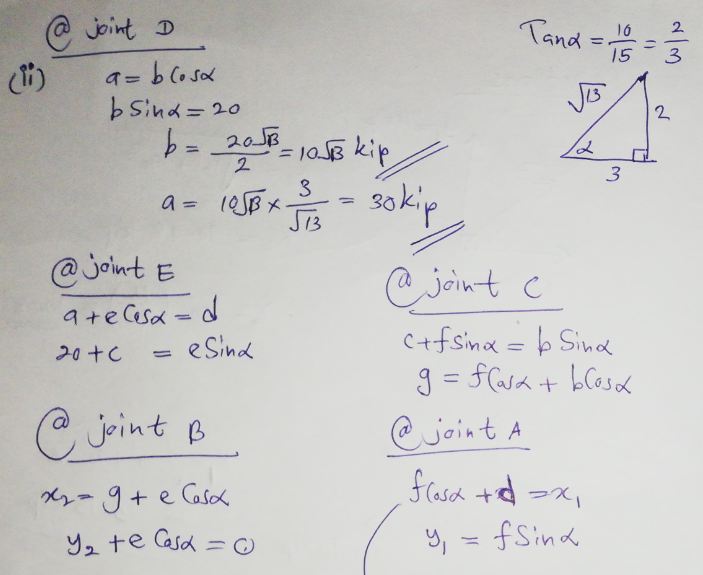 @ joint D
Tanα = 10/15 = 2/3
(ii) a = b Cosα
b Sinα = 20
b = 20√13/2 = 10√13 kip
a = 10√13 × 3/√13 = 30 kip
√13
2
α
3
@ joint E
a + e Cosα = d
20 + c = e Sinα
@ joint C
c + f Sinα = b Sinα
g = f Cosα + b Cosα
@ joint B
x₂ = g + e Cosα
y₂ + e Cosα = 0
@ joint A
f Cosα + d = x₁
y₁ = f Sinα